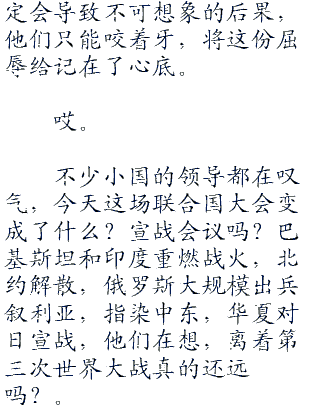 定会导致不可想象的后果，
他们只能咬着牙，将这份屈
辱给记在了心底。
哎。
不少小国的领导都在叹
气，今天这场联合国大会变
成了什么？宣战会议吗？巴
基斯坦和印度重燃战火，北
约解散，俄罗斯大规模出兵
叙利亚，指染中东，华夏对
日宣战，他们在想，离着第
三次世界大战真的还远
吗？。